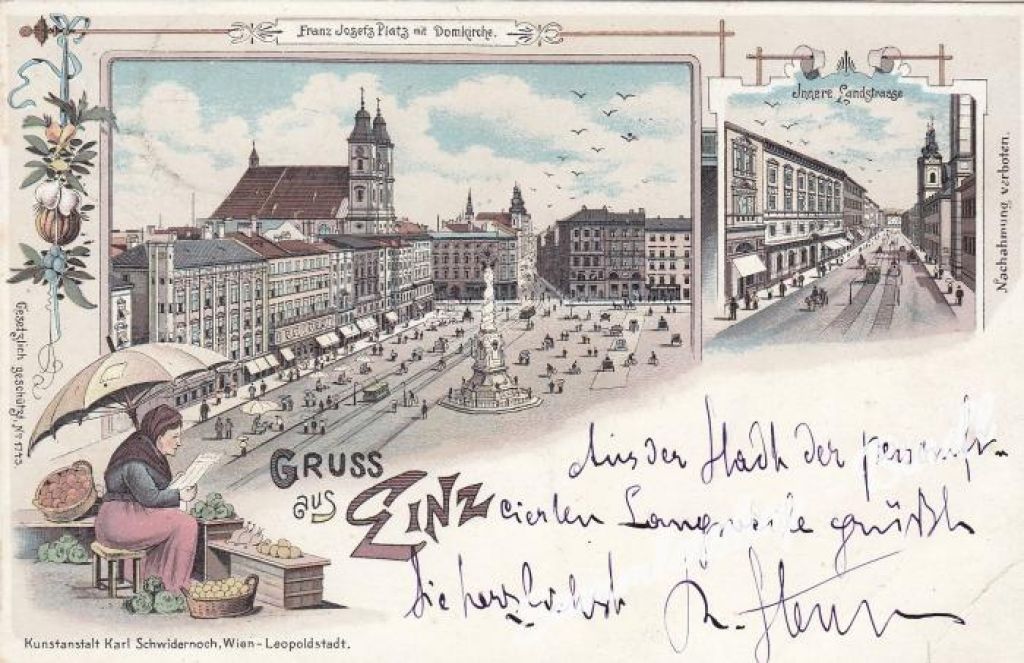 Franz Josefs Platz mit Domkirche.
Innere Landstrasse
Nachahmung verboten.
Gesetzlich geschützt, No 1743.
GRUSS
aus
LINZ
Aus der Stadt der personifi-
cierten Langweile grüßt
Sie herzlichst
Kunstanstalt Karl Schwidernoch, Wien-Leopoldstadt.